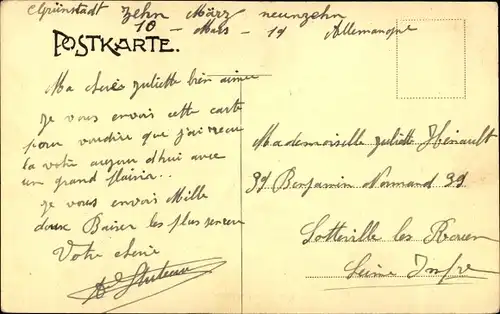 Grünstadt Zehn März neunzehn
10 - Mars - 19 Allemangne
POSTKARTE.
Ma cherie juliette bien aimee
je vous envois cette carte
pour vous dire que j'ai recu
la votre aujour d'hui avec
un grand plaisir..
je vous envois Mille
doux Baiser les plus sincere
Votre cherie
Mademoiselle juliette Hénault
39 Benjamin Normand 39
Sotteville les Rouen
Seine Infre